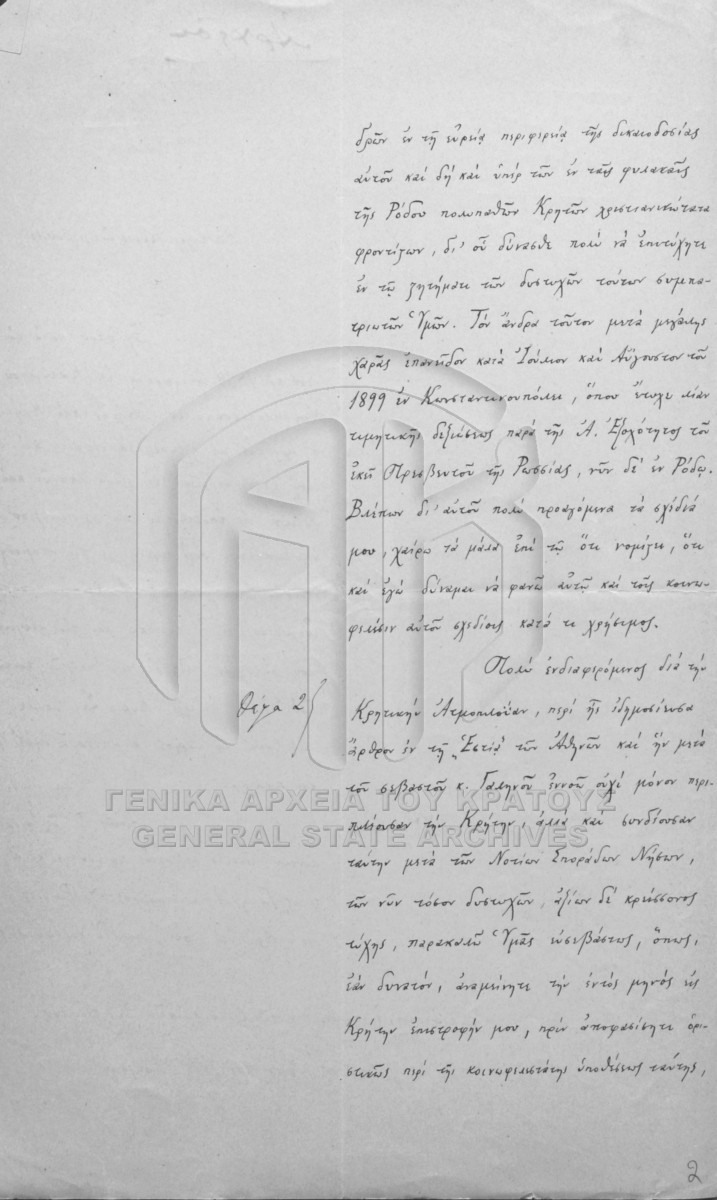 δρῶν ἐν τῇ εὐρείᾳ περιφερείᾳ τῆς δικαιοδοσίας
αὐτοῦ καὶ δὴ καὶ ὑπὲρ τῶν ἐν ταῖς φυλακαῖς
τῆς Ῥόδου πολυπαθῶν Κρητῶν χριστιανικώτατα
φροντίζων, δι' οὗ δύνασθε πολὺ νὰ ἐπιτύχητε
ἐν τῷ ζητήματι τῶν δυστυχῶν τούτων συμπα-
τριωτῶν Ὑμῶν. Τὸν ἄνδρα τοῦτον μετὰ μεγάλης
χαρᾶς ἐπανεῖδον κατὰ Ἰούλιον καὶ Αὔγουστον τοῦ
1899 ἐν Κωνσταντινουπόλει, ὅπου ἔτυχε λίαν
τιμητικῆς δεξιώσεως παρὰ τῆς Α. Ἐξοχότητος τοῦ
ἐκεῖ Πρεσβευτοῦ τῆς Ρωσσίας, νῦν δὲ ἐν Ρόδῳ.
Βλέπων δι' αὐτοῦ πολὺ προαγόμενα τὰ σχέδιά
μου, χαίρω τὰ μάλα ἐπὶ τῷ ὅτι νομίζει, ὅτι
καὶ ἐγὼ δύναμαι νὰ φανῶ αὐτῷ καὶ τοῖς κοινω-
φελέσιν αὐτοῦ σχεδίοις κατά τι χρήσιμος.
Πολὺ ἐνδιαφερόμενος διὰ τὴν
Θέμα 2
Κρητικὴν Ἀτμοπλοΐαν, περὶ ἧς ἐδημοσίευσα
ἄρθρον ἐν τῇ „Ἑστίᾳ" τῶν Ἀθηνῶν καὶ ἣν μετὰ
τοῦ σεβαστοῦ κ. Γαληνοῦ ἐννοῶ οὐχὶ μόνον περι-
πλέουσαν τὴν Κρήτην, ἀλλὰ καὶ συνδέουσαν
ταύτην μετὰ τῶν Νοτίων Σποράδων Νήσων,
τῶν νῦν τόσον δυστυχῶν, ἀξίων δὲ κρείσσονος
τύχης, παρακαλῶ Ὑμᾶς εὐσεβάστως, ὅπως,
ἐὰν δυνατόν, ἀναμείνητε τὴν ἐντὸς μηνὸς εἰς
Κρήτην ἐπιστροφήν μου, πρὶν ἀποφασίσητε ὁρι-
στικῶς περὶ τῆς κοινωφελεστάτης ὑποθέσεως ταύτης,
2
ΓΕΝΙΚΑ ΑΡΧΕΙΑ ΤΟΥ ΚΡΑΤΟΥΣ
GENERAL STATE ARCHIVES